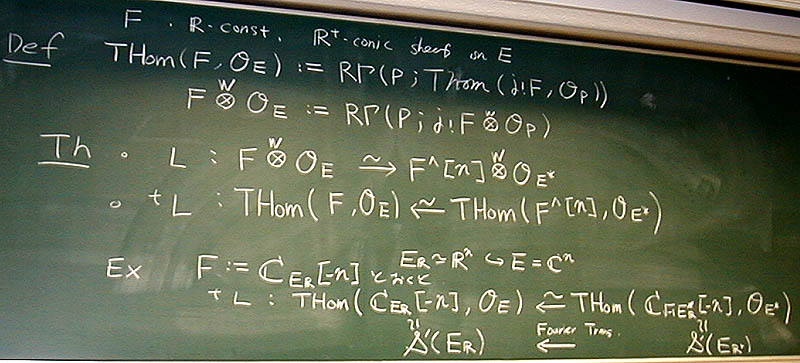 F : R-const. R⁺-conic sheaf on E
Def THom(F, O_E) := RΓ(P; Thom(j!F, O_P))
F ⊗^W O_E := RΓ(P; j!F ⊗^W O_P)
Th • L : F ⊗^W O_E ≃→ F^[n] ⊗^W O_E*
∘ ᵗL : THom(F, O_E) ≃← THom(F^[n], O_E*)
Ex F := C_{E_R}[-n] とおくと E_R ≃ Rⁿ ↪ E = Cⁿ
ᵗL : THom(C_{E_R}[-n], O_E) ≃← THom(C_{√-1E_R*}[-n], O_E*)
S'(E_R) ← Fourier Trans. S'(E_R*)